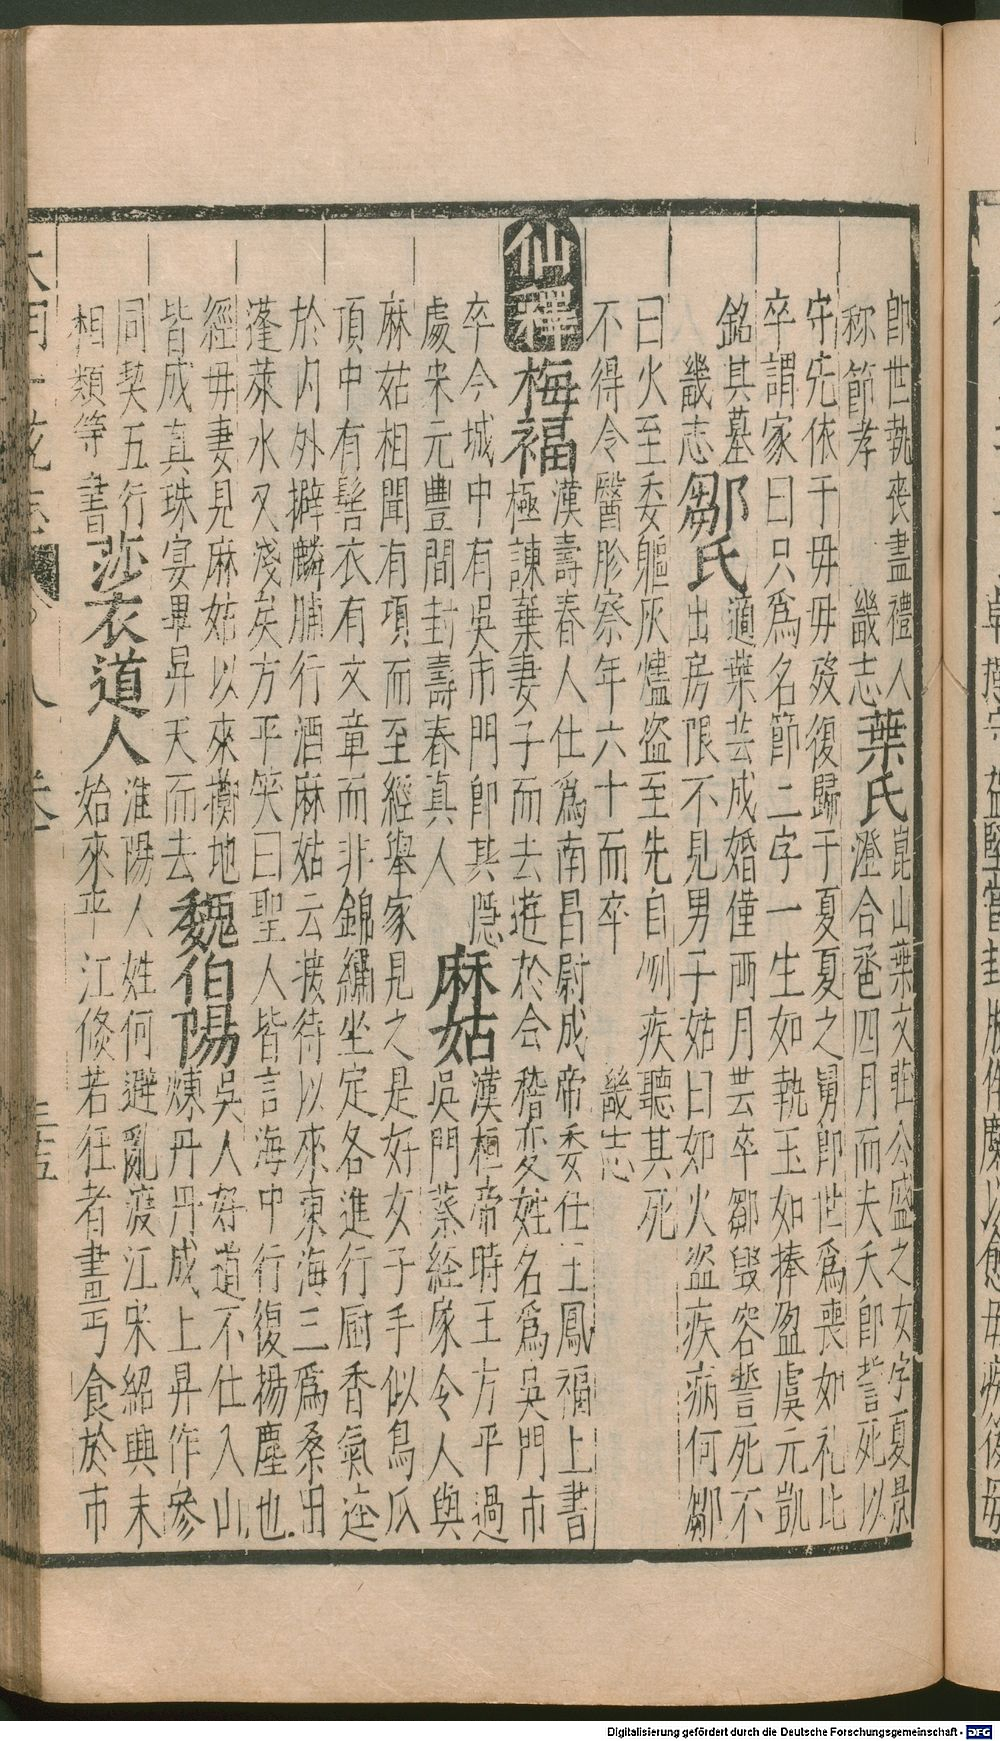 即世執喪盡禮人
称節孝　畿志
葉氏
崑山葉文莊公盛之女字夏景
澄合巹四月而夫夭即誓死以
守先依于毋毋歿復歸于夏夏之舅即世為喪如礼比
卒謂家曰只為名節二字一生如執玉如捧盈虞元凱
銘其墓
畿志
鄒氏
適葉芸成婚僅兩月芸卒鄒毀容誓死不
出房限不見男子姑曰如火盜疾病何鄒
曰火至委軀灰燼盜至先自刎疾聽其死
不得令醫胗察年六十而卒　畿志
仙釋
梅福
漢壽春人仕為南昌尉成帝委仕王鳳福上書
極諫棄妻子而去遊於会稽变姓名為吳門市
卒今城中有吳市門即其隱
處宋元豐間封壽春真人
麻姑
漢桓帝時王方平過
吳門蔡経家令人與
麻姑相聞有項而至經舉家見之是好女子手似鳥瓜
頂中有髻衣有文章而非錦繡坐定各進行厨香氣迬
於內外擗麟脯行酒麻姑云接待以來東海三為桑田
蓬萊水又淺矣方平笑曰聖人皆言海中行復揚塵也
經毋妻見麻姑以來擲地
皆成真珠宴畢昇天而去
魏伯陽
吳人好道不仕入山
煉丹丹成上昇作參
同契五行
相類等書
莎衣道人
淮陽人姓何避亂渡江宋紹興末
始來平江倏若狂者晝丐食於市
Digitalisierung gefördert durch die Deutsche Forschungsgemeinschaft - DFG